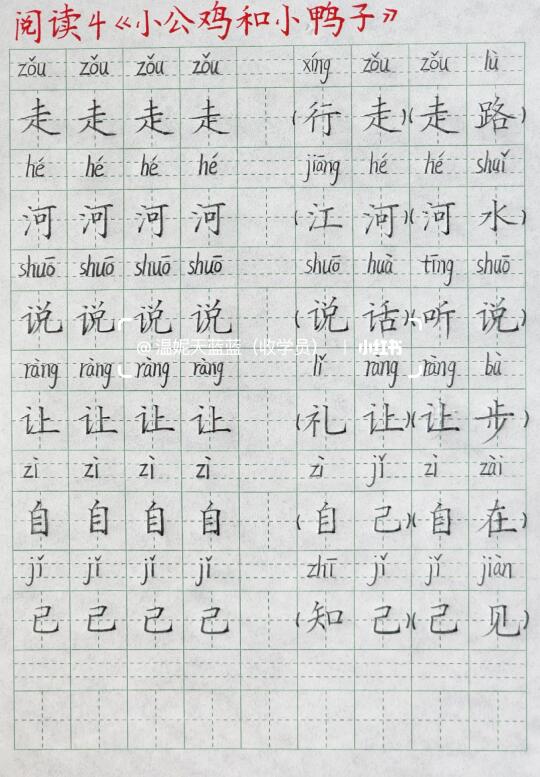 阅读4《小公鸡和小鸭子》
zǒu zǒu zǒu zǒu xíng zǒu zǒu lù
走 走 走 走 (行 走)(走 路)
hé hé hé hé jiāng hé hé shuǐ
河 河 河 河 (江 河)(河 水)
shuō shuō shuō shuō shuō huà tīng shuō
说 说 说 说 (说 话)(听 说)
@温妮天蓝蓝（收学员） | 小红书
ràng ràng ràng ràng lǐ ràng ràng bù
让 让 让 让 (礼 让)(让 步)
zì zì zì zì zì jǐ zì zài
自 自 自 自 (自 己)(自 在)
jǐ jǐ jǐ jǐ zhī jǐ jǐ jiàn
己 己 己 己 (知 己)(己 见)